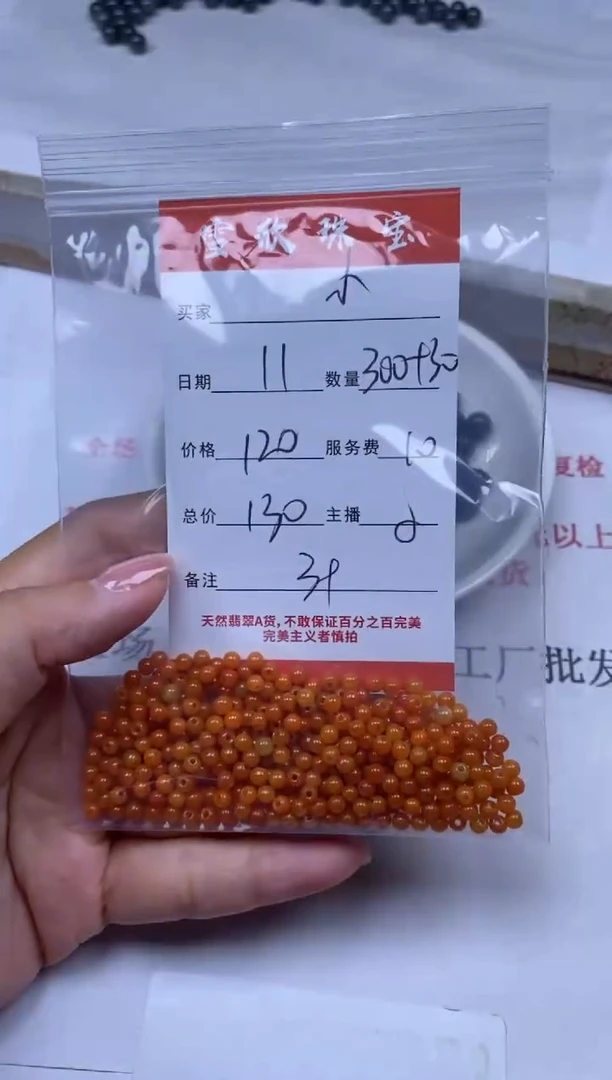 雪欣珠宝
买家 小
日期 11 数量 300+30
价格 120 服务费 10
总价 130 主播
备注
天然翡翠A货,不敢保证百分之百完美
完美主义者慎拍
全场
复检
以上
货
场
工厂批发